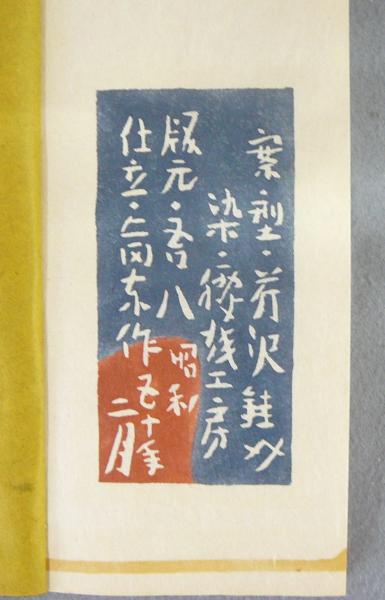 案・型・芹沢銈介
染・工房
版元・吾八
仕立・上岡東作
昭和
五十年
二月